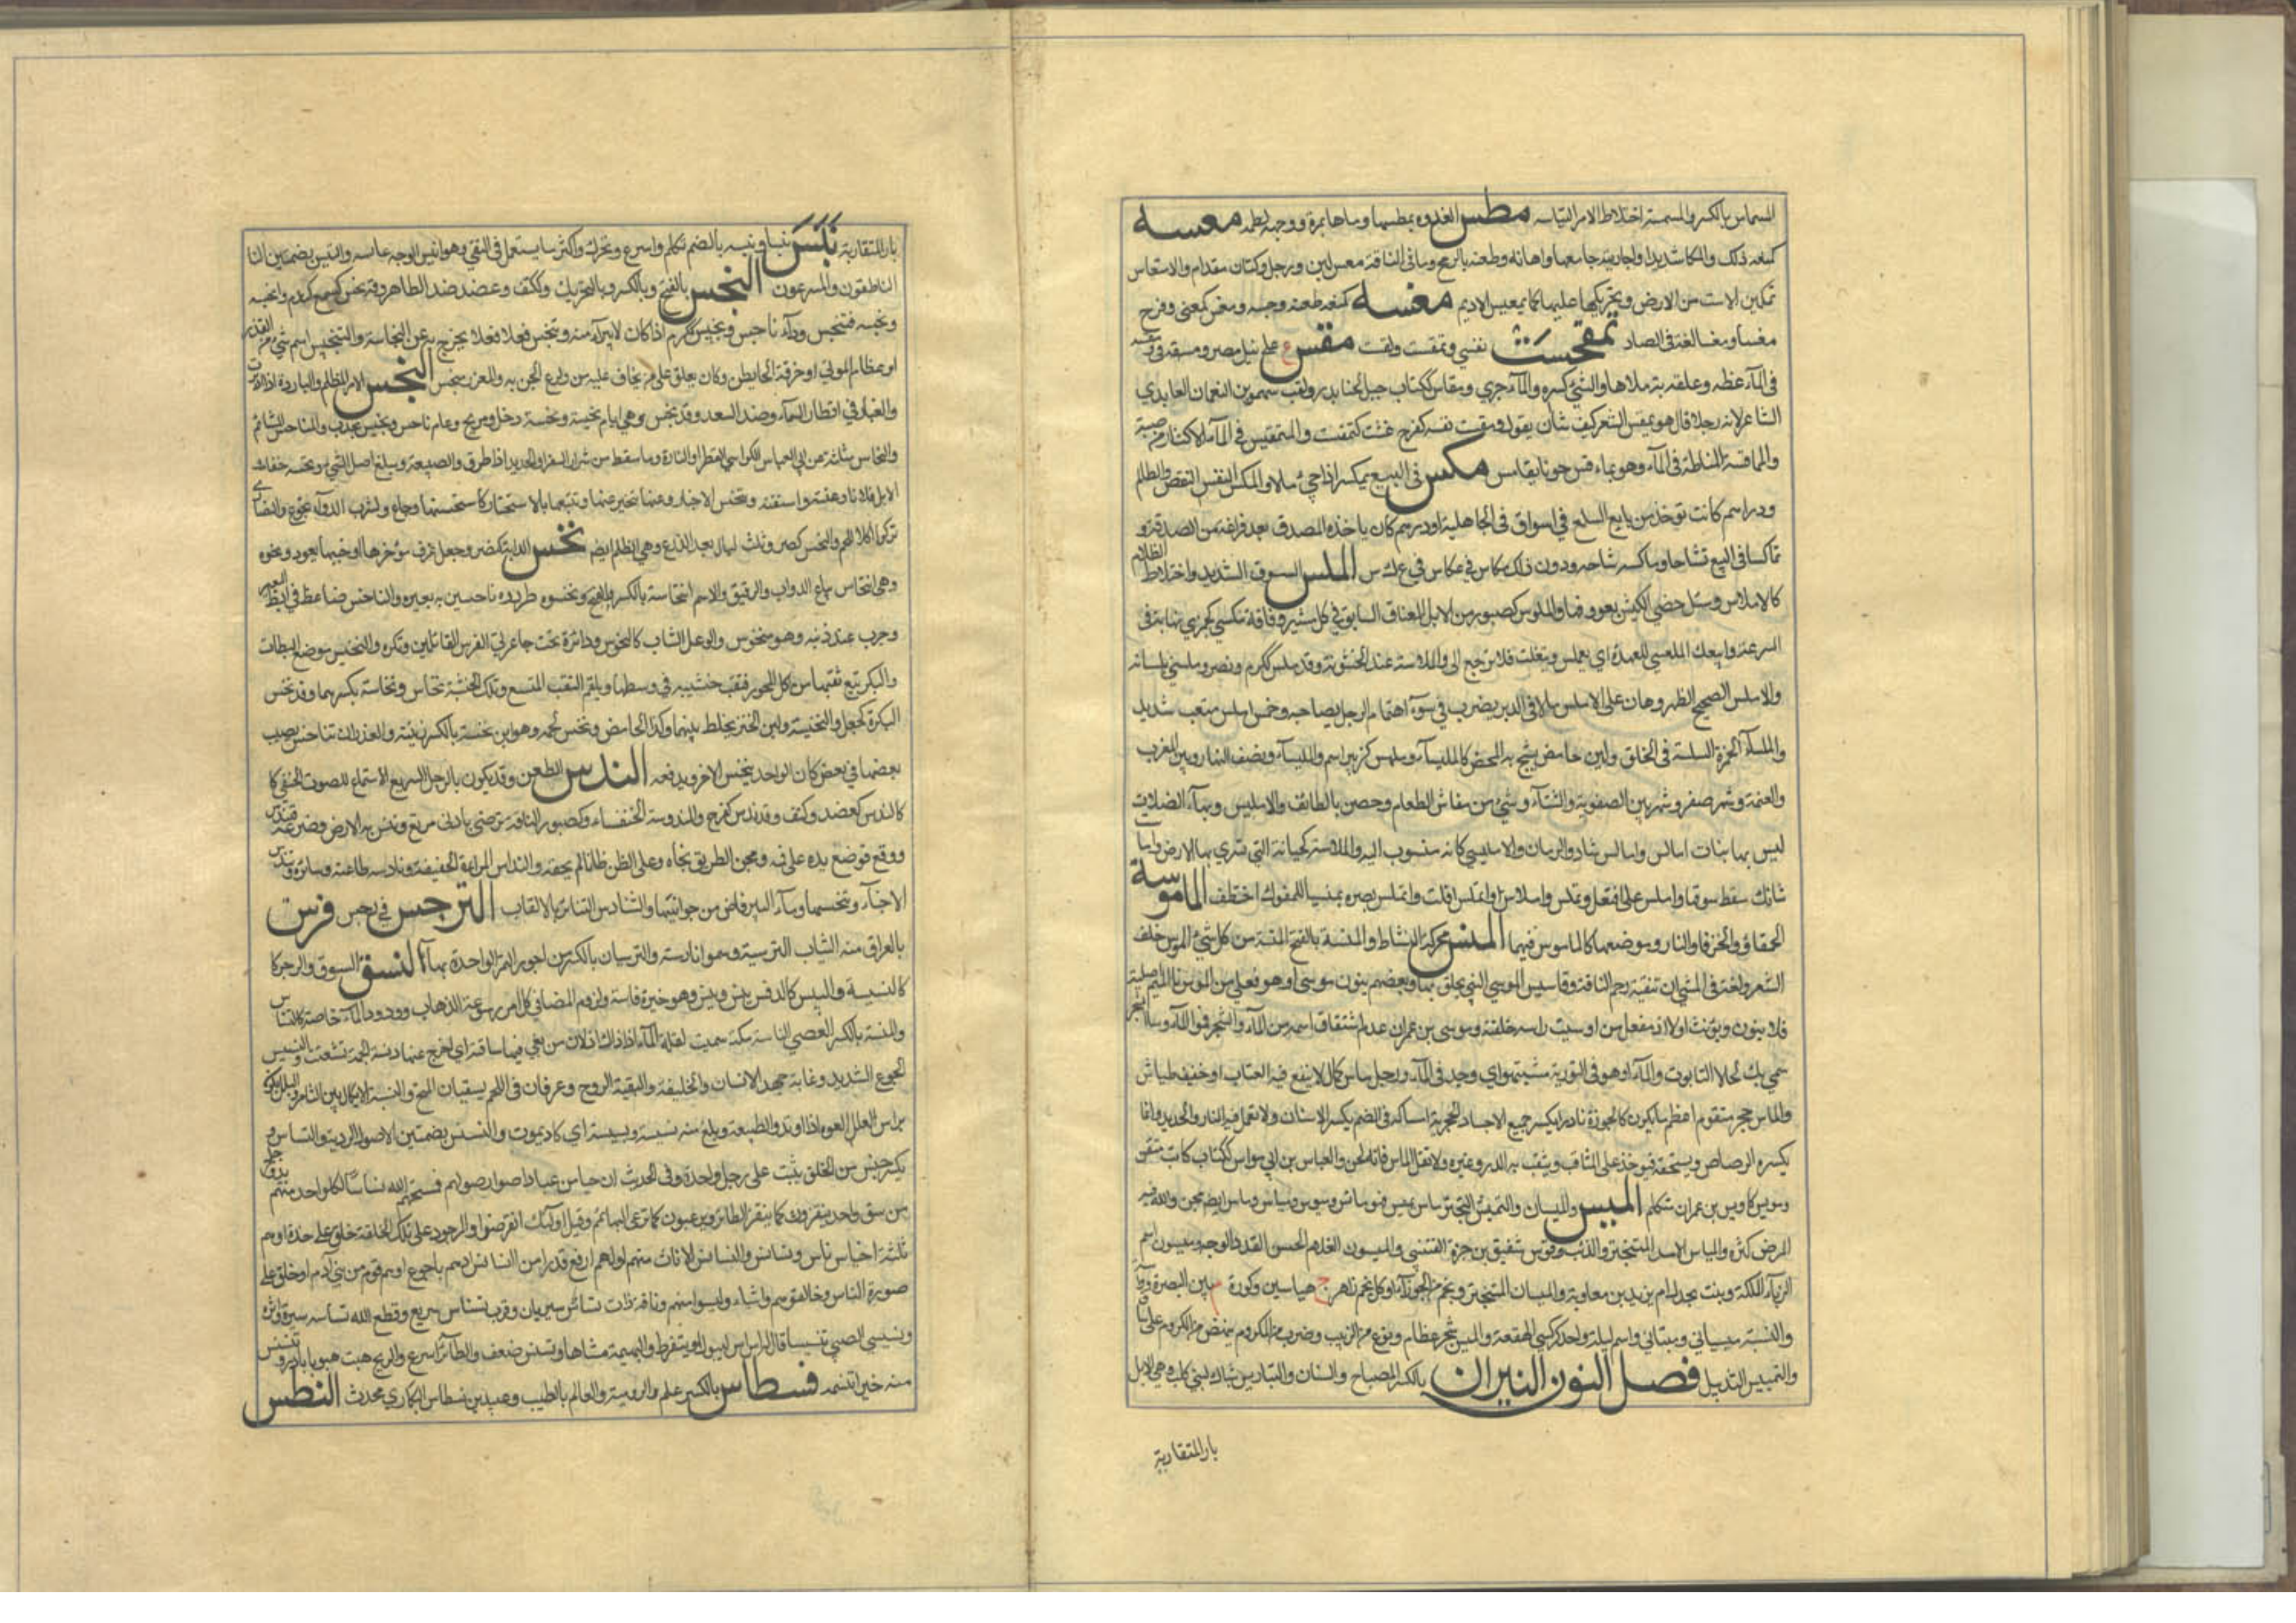 المسماس بالكسر والمسمسة اختلاط الامر التباسه مطس العذرة يمطسها رماها بمرة ووجهه لطمه معسه
كمنعه دلكه دلكا شديدا والجارية جامعها واهانه وطعنه بالرمح وما فى الناقة معس لبن ورجل وكتان مقدام والامتعاس
تمكين الاست من الارض وتحريكها عليها كما يمعس الاديم مغسه كمنعه طعنه وجسه ومغس كعنى وفرح
مغسا ومغسا لغة فى الصاد تمقحست نفسي وتمقست ولقست مقس ع على نيل مصر ومقسه فى
فى الماء غطه والقربة ملاها والشئ كسره والماء جري ومقاس ككتاب جبل بالخابور ولقب مسهر بن النعمان العايذي
الشاعر لانه رجلا قال هو يمقس الشعر كيف شاء اي يقوله ومقست نفسه كفرح غثت كتمقست والتمقيس فى الماء الاكثار من صبه
والمماقسة المغاطة فى الماء وهو يماقس حوتا يقامس مكس فى البيع يمكس اذا جبى مالا والمكس النقص والظلم
ودراهم كانت توخذ من بايع السلع فى اسواق فى الجاهلية او درهم كان ياخذه المصدق بعد فراغه من الصدقة و
تماكسا فى البيع تشاحا وماكسه شاحه ودون ذلك مكاس وعكاس في ع ك س الملس السوق الشديد واختلاط الظلام
كالاملاس وسل خصيي الكبش بعروقهما والملوس كصبور من الابل المعناق السابق في كل مسير وناقة ملسى كجمزى نهاية فى
السرعة وابيعك الملسى لا عهدة اي تتملس وتتفلت فلا ترجع الى والملاسة ضد الخشونة وقد ملس ككرم ونصر وملسنى بلسانه
والاملس الصحيح الظهر وهان على الاملس ما لاقى الدبر يضرب في سوء اهتمام الرجل بصاحبه وخمس املس متعب شديد
والملساء الخمرة السلسة فى الحلق ولبن حامض يشج به المحض كالمليساء وملمس كزبير اسم والمليساء ونصف النهار وبين المغرب
والعتمة وشهر صفر وشهر بين الصفرية والشتاء وشئ من قماش الطعام وحصن بالطائف والامليس وبهاء الفلاة
ليس بها نبات امالس واماليس شاذ والرمان الامليسي كانه منسوب اليه والملاسة كجبانة التي تسوي بها الارض واملست
شاتك سقط صوفها واملس على افتعل وتملس واملاس وامتلس افلت وامتلس بصره مبنيا للمفعول اختطف الماموسة
الحمقاء والخرقاء والنار وموضعها كالماموس فيهما المنس محركة النشاط والمنسة بالفتح المسنة من كل شئ الموس حلق
الشعر ولغة فى المسي اي تنقية رحم الناقة وتاسيس الموسى التى يحلق بها وبعضهم ينون موسى او هو فعلى من الموس فالميم اصلية
فلا ينون ويونث اولا او مفعل من اوسيت راسه حلقته وموسى بن عمران عم اشتقاق اسمه من الماء والشجر فمو الماء وسا الشجر
سمي به لحال التابوت والماء او هو فى التورية مشيتهو اي وجد فى الماء ورجل ماس كمال لا ينفع فيه العتاب او خفيف طياش
والماس حجر متقوم اعظم ما يكون كالجوزة نادرا يكسر جميع الاجساد الحجرية وامساكه فى الفم يكسر الاسنان ولا تعمل فيه النار والحديد وانما
يكسره الرصاص ويسحقه فيوخذ على المثاقب ويثقب به الدر وغيره ولا تقل الماس فانه لحن والعباس بن ابي مواس ككتاب كاتب متقن
ومويس كاويس بن عمران متكلم الميس والميسان والتميس التبختر ماس يميس فهو مائس وميوس ومياس وماس ايضا مجن والله فيه
المرض كثره والمياس الاسد المتبختر والذئب وفرس شقيق بن جزء القتبي والميسون الغلام الحسن القد والوجه وميسون اسم
الزباء الملكة وبنت بجدل ام يزيد بن معاوية والميسان المتبختر ونجم من الجوزاء او كل نجم زاهر ج مياسين وكورة م بين البصرة وواسط
والنسبة ميساني وميستاني واسم ليلة واحد كوكبي الهقعة والميس شجر عظام ونوع من الزبيب وضرب من الكروم ينهض من الكروم على ساق
والتمييس التذييل فصل النون النبراس بالكسر المصباح والسنان والنباريس شباك لبني كلب وهي الابار
بار المتقاربة
بار المتقاربة نبس نبسا ونبسة بالضم تكلم واسرع وتحرك واكثر ما يستعمل فى النفي وهو انبس الوجه عابسه والنبس بضمتين النا
الناطقون والمسرعون النجس بالفتح وبالكسر وبالتحريك وككتف وعضد ضد الطاهر وقد نجس كسمع وكرم وانجسه
ونجسه فتنجس وداء ناجس ونجيس ككرم اذا كان لا يبرا منه وتنجس فعل فعلا يخرج به عن النجاسة والتنجيس اسم شئ من القذر
او عظام الموتى او خرقة الحايض كان يعلق على من يخاف عليه من ولوع الجن به والمعوذ منجس النحس الامر المظلم والريح الباردة اذا ادبرت
والغبار في اقطار السماء وضد السعد وقد نحس وهي ايام نحيسة ونحسة وزحل ومريخ وعام ناحس ونحيس مجدب والمناحس المشائم
والنحاس مثلثة عن ابي العباس الكواشي القطر والنار وما سقط من شرار الصفر او الحديد اذا طرق والطبيعة ومبلغ اصل الشئ ونحسه جفاه
الابل فلانا وعنته واشقته وتنحس الاخبار وعنها تخبر عنها وتتبعها بالاستخبار كاستنحسها وجاع ولشرب الدواء تجوع والنصارى
تركوا اكل اللحم والنحس كصرد ثلث ليال بعد الدرع وهي الظلم ايضا نخس الدابة كنصر وجعل غرز موخرها او جنبها بعود ونحوه
وهي النخاس بياع الدواب والرقيق والاسم النخاسة بالكسر والفتح ونخسوه طردوه ناخسين به بعيره والناخس ضاغط في ابط البعير
وجرب عند ذنبه وهو منخوس والوعل الشاب كالنخوس ودائرة تحت جاعرتي الفرس الى الفائلين وتكره والنخيس موضع البطان
والبكرة يتسع ثقبها من اكل المحور فتثقب خشيبة في وسطها ويلقم الثقب المتسع وتلك الخشبة نخاس ونخاسة بكسرهما وقد نخس
البكرة كجعل والنخيسة ولبن العنز يخلط بينهما وكذا الحامض ونخس لحمه وهو ابن نخسة بالكسر زنية والغدران تناخس يصب
بعضها في بعض كان الواحد ينخس الاخر ويدفعه الندس الطعن وقد يكون بالرجل السريع الاستماع للصوت الخفي كا
كالندس كعضد وكتف وقد ندس كفرح والمندوسة الخنفساء وكصبور الناقة ترضى بادنى مرتع وندس به الارض وضربه فتندس
ووقع فوضع يده على فمه ومن الطريق نحاه وعلى الظن ظنا لم يحقه والنداس المراة الخفيفة ونادسه طاعنه وسائره وتندس
الاخبار وتنحسها وماء البئر فاض من جوانبها والتنادس التنابز بالالقاب النرجس في رجس نرس
بالعراق منه الثياب النرسية وهو ابا نرسة والنرسيان بالكسر من اجود التمر الواحدة بهاء النسق السوق والزجر كا
كالنسنسة واليبس كالنسوس ينس وينس وهو خبزة ناسة ولزوم المضاء في كل امر وسرعة الذهاب وورود الماء خاصة كالتنساس
والمنسة بالكسر العصا والناسة مكة سميت لقلة الماء اذ ذاك او لان من بغى فيها ساقته اي اخرج عنها ونسة الجمة تشعثت والنسيس
الجوع الشديد وغاية جهد الانسان والخليقة والبقية الروح وعرقان فى اللحم يسقيان المخ والنسيسة الايكال بين الناس والبلل يكون
براس العود اذا اوقد والطبيعة وبلغ منه نسيسه ونسيسته اي كاد يموت والنسس بضمتين الاصول الردية والنسناس و
يكسر جنس من الخلق يثب على رجل واحدة وفى الحديث ان حيا من عاد عصوا رسولهم فمسخهم الله نسناسا لكل واحد منهم يد ورجل
من شق واحد ينقزون كما ينقز الطائر ويرعون كما ترعى البهائم وقيل اولئك انقرضوا والموجود على تلك الخلقة خلق على حدة او هم
ثلثة اجناس ناس ونسناس ونسانس او النسانس الاناث منهم او هم ارفع قدرا من النسناس او هم ياجوج او هم قوم من بني آدم او خلق على
صورة الناس وخالفوهم في اشياء وليسوا منهم وناقة ذات نسناس سير باق وقرب نسناس سريع وقطع الله نسناسه سيره واثره
ونسس الصبي تنسيسا قال له اس اس ليبول او يتغوط والبهيمة مشاها وتنسنس ضعف والطائر اسرع والريح هبت هبوبا باردا وتنسس
منه خبرا تنسمه نسطاس بالكسر علم وبالرومية والعالم بالطب وعبيد بن نسطاس البكاري محدث النطس